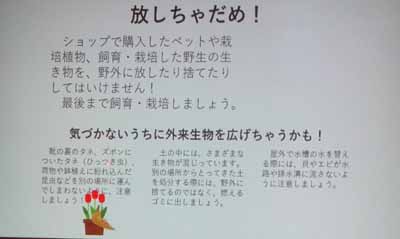 放しちゃだめ！
ショップで購入したペットや栽
培植物、飼育・栽培した野生の生
き物を、野外に放したり捨てたり
してはいけません！
最後まで飼育・栽培しましょう。
気づかないうちに外来生物を広げちゃうかも！
靴の裏のタネ、ズボンに
ついたタネ（ひっつき虫）、
荷物や鉢植えに紛れ込んだ
昆虫などを別の場所に運ん
でしまわないように、注意
しましょう！
土の中には、さまざまな
生き物が混じっています。
別の場所からとってきた土
を処分する際には、野外に
捨てるのではなく、燃える
ゴミに出しましょう。
屋外で水槽の水を替え
る際には、貝やエビが水
路や排水溝に流さないよ
うに注意しましょう。